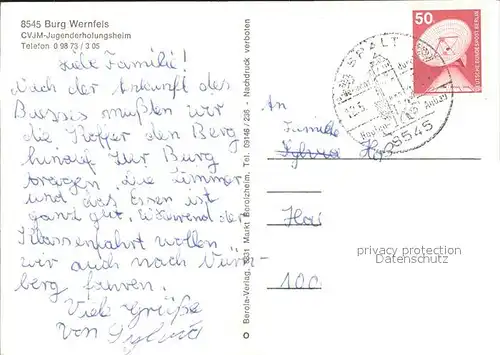 8545 Burg Wernfels
CVJM-Jugenderholungsheim
Telefon 0 98 73 / 3 05
Liebe Familie!
Nach der Ankunft des
Busses mußten wir
die Koffer den Berg
hinauf zur Burg
tragen. Die Zimmer
und das Essen ist
ganz gut. Während der
Klassenfahrt wollen
wir auch nach Nürn-
berg fahren.
Viele Grüße
von Sylvia
Berola-Verlag, 8531 Markt Berolzheim, Tel. 09146/226 - Nachdruck verboten
50
DEUTSCHE BUNDESPOST BERLIN
SPALT
8545
An
Familie
Sylvia
100
privacy protection
Datenschutz